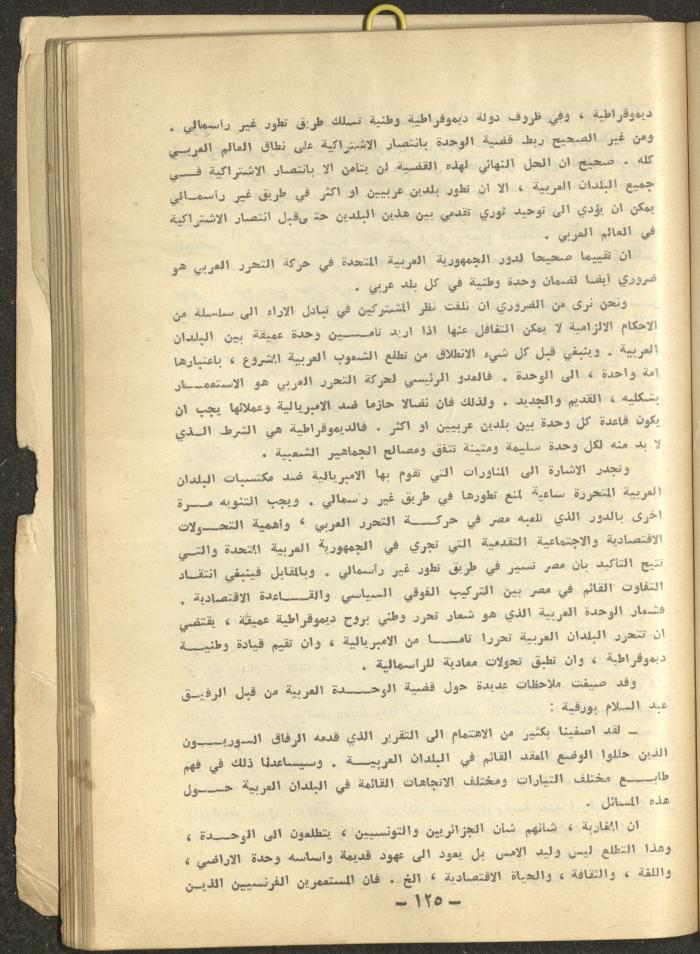 ديموقراطية ، وفي ظروف دولة ديموقراطية وطنية تسلك طريق تطور غير رأسمالي .
ومن غير الصحيح ربط قضية الوحدة بانتصار الاشتراكية على نطاق العالم العربي
كله . صحيح ان الحل النهائي لهذه القضية لن يتأمن الا بانتصار الاشتراكية في
جميع البلدان العربية ، الا ان تطور بلدين عربيين او اكثر في طريق غير رأسمالي
يمكن ان يؤدي الى توحيد ثوري تقدمي بين هذين البلدين حتى قبل انتصار الاشتراكية
في العالم العربي .
ان تقييما صحيحا لدور الجمهورية العربية المتحدة في حركة التحرر العربي هو
ضروري أيضا لضمان وحدة وطنية في كل بلد عربي .
ونحن نرى من الضروري ان نلفت نظر المشتركين في تبادل الاراء الى سلسلة من
الاحكام الالزامية لا يمكن التغافل عنها اذا اريد تأمين وحدة عميقة بين البلدان
العربية . وينبغي قبل كل شيء الانطلاق من تطلع الشعوب العربية المشروع ، باعتبارها
امة واحدة ، الى الوحدة . فالعدو الرئيسي لحركة التحرر العربي هو الاستعمار
بشكليه ، القديم والجديد . ولذلك فان نضالا حازما ضد الامبريالية وعملائها يجب ان
يكون قاعدة كل وحدة بين بلدين عربيين او اكثر . فالديموقراطية هي الشرط الذي
لا بد منه لكل وحدة سليمة ومتينة تتفق ومصالح الجماهير الشعبية .
وتجدر الاشارة الى المناورات التي تقوم بها الامبريالية ضد مكتسبات البلدان
العربية المتحررة ساعية لمنع تطورها في طريق غير رأسمالي . ويجب التنويه مرة
اخرى بالدور الذي تلعبه مصر في حركة التحرر العربي ، واهمية التحولات
الاقتصادية والاجتماعية التقدمية التي تجري في الجمهورية العربية المتحدة والتي
تتيح التأكيد بأن مصر تسير في طريق تطور غير رأسمالي . وبالمقابل فينبغي انتقاد
التفاوت القائم في مصر بين التركيب الفوقي السياسي والقاعدة الاقتصادية .
فشعار الوحدة العربية الذي هو شعار تحرر وطني بروح ديموقراطية عميقة ، يقتضي
ان تتحرر البلدان العربية تحررا تاما من الامبريالية ، وان تقيم قيادة وطنية
ديموقراطية ، وان تطبق تحولات معادية للرأسمالية .
وقد صيغت ملاحظات عديدة حول قضية الوحدة العربية من قبل الرفيق
عبد السلام بورقية :
ــ لقد اصغينا بكثير من الاهتمام الى التقرير الذي قدمه الرفاق السوريون
الذين حللوا الوضع المعقد القائم في البلدان العربية . وسيساعدنا ذلك في فهم
طابع مختلف التيارات ومختلف الاتجاهات القائمة في البلدان العربية حول
هذه المسائل .
ان المغاربة ، شأنهم شأن الجزائريين والتونسيين ، يتطلعون الى الوحدة ،
وهذا التطلع ليس وليد الامس بل يعود الى عهود قديمة وأساسه وحدة الاراضي ،
واللغة ، والثقافة ، والحياة الاقتصادية ، الخ . فان المستعمرين الفرنسيين الذين
ــ ١٢٥ ــ